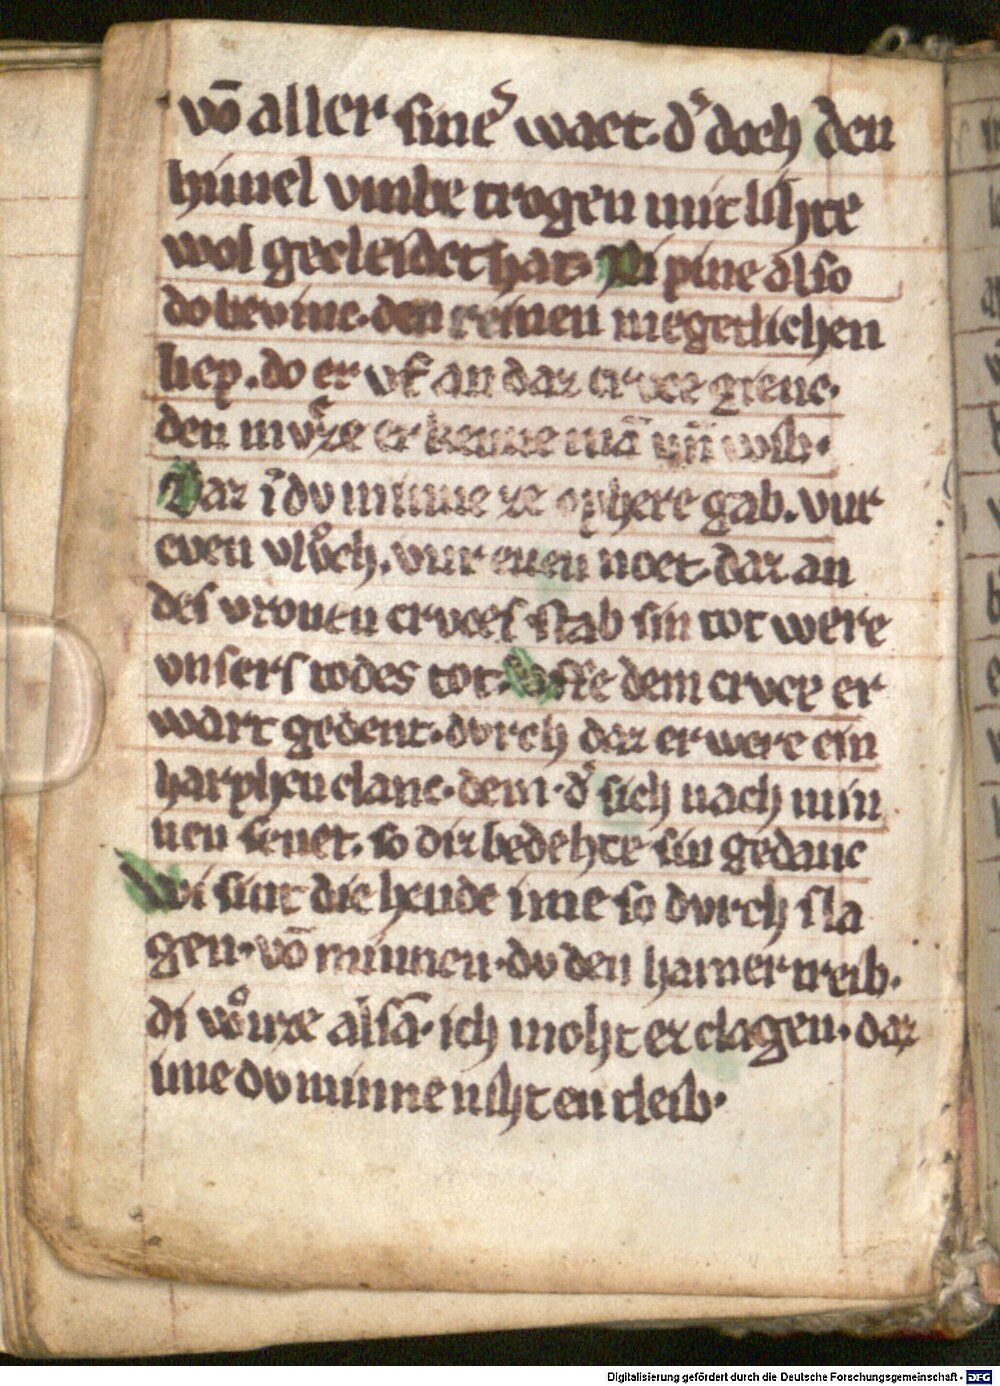 vō aller sine͛ waet · d͛ doch den
himel vmbe trogen mit lihte
wol gecleidet hat · Di pine also
do bevinc · den reinen megetlichen
liep . do er vf an daz crvce gienc ·
den mvͦze erkenne mā vn̄ wib ·
Daz ī dv minne ze ophere gab . vur
even vlvͦch . vur even noet · daz an
des vronen crvces stab sin tot were
vnsers todes tot · Gaffe dem crvce er
wart gedent · dvrch daz er were ein
harphen clanc · dem · d͛ sich nach min
nen senet . so diz bedehte sin gedanc
Wi sint die hende ime so dvrch sla
gen · vō minnen · dv den hamer treib ·
di wͦnze alsā · ich moht erclagen · daz
ime dv minne niht en cleib ·
Digitalisierung gefördert durch die Deutsche Forschungsgemeinschaft - DFG